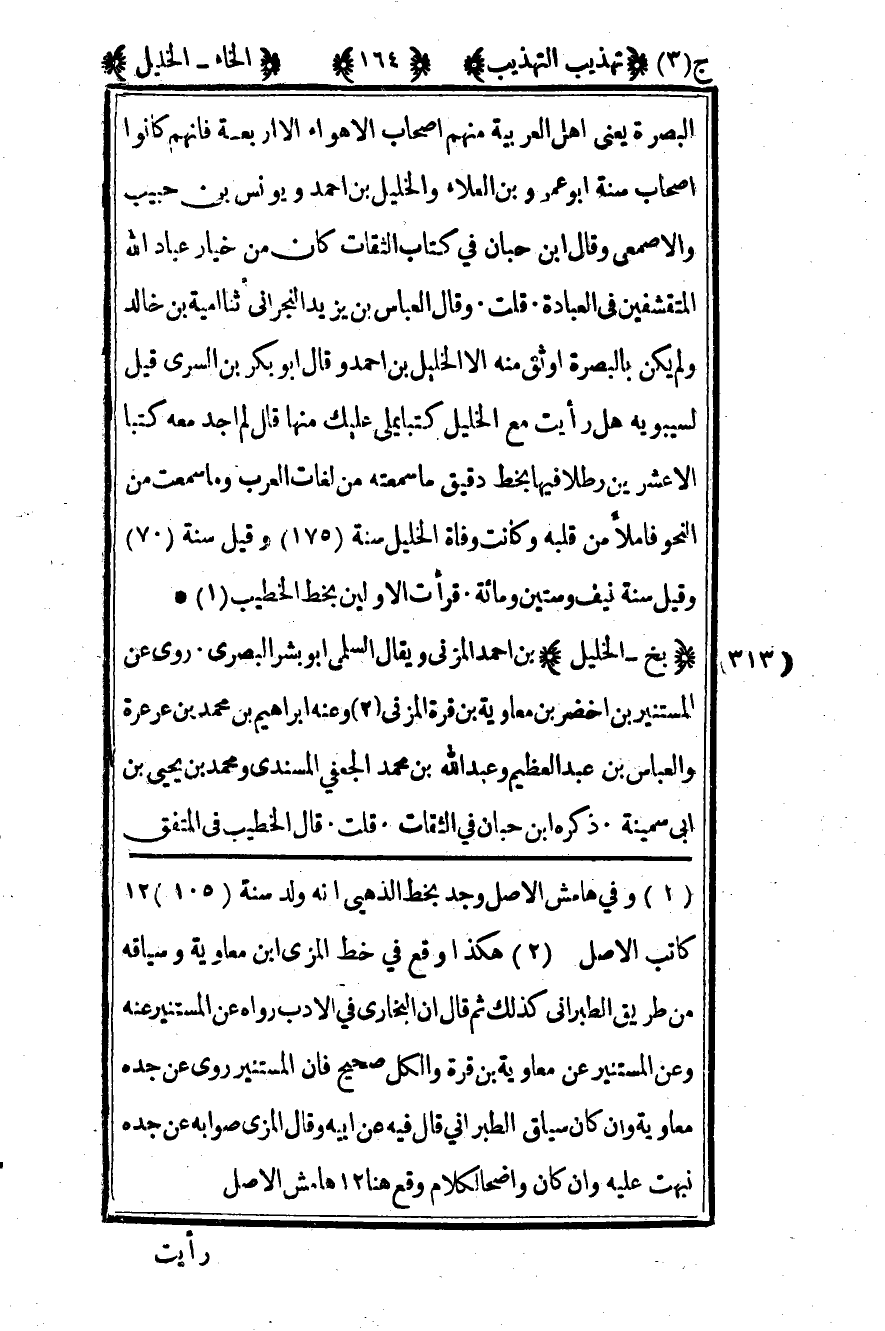 ج(٣) ﴿تهذيب التهذيب﴾ ﴿١٦٤﴾ ﴿الخاء - الخليل﴾
البصرة يعنى اهل العربية منهم اصحاب الاهواء الا اربعة فانهم كانوا
اصحاب سنة ابو عمرو بن العلاء والخليل بن احمد ويونس بن حبيب
والاصمعى وقال ابن حبان في كتاب الثقات كان من خيار عباد الله
المتقشفين فى العبادة٠ قلت٠ وقال العباس بن يزيد النجرانى ثنا امية بن خالد
ولم يكن بالبصرة اوثق منه الا الخليل بن احمد وقال ابو بكر بن السرى قيل
لسيبويه هل رأيت مع الخليل كتبا يملى عليك منها قال لم اجد معه كتبا
الا عشرين رطلا فيها بخط دقيق ما سمعته من لغات العرب وما سمعت من
النحو فاملأً من قلبه وكانت وفاة الخليل سنة (١٧٥) وقيل سنة (٧٠)
وقيل سنة نيف وستين ومائة٠ قرأت الاولين بخط الخطيب (١) •
(٣١٣) ﴿بخ - الخليل﴾ بن احمد المزنى ويقال السلمى ابو بشر البصرى٠ روى عن
المستنير بن اخضر بن معاوية بن قرة المزنى (٢) وعنه ابراهيم بن محمد بن عرعرة
والعباس بن عبد العظيم وعبد الله بن محمد الجعفي المسندى ومحمد بن يحيى بن
ابى سمينة ٠ ذكره ابن حبان في الثقات ٠ قلت٠ قال الخطيب فى المتفق
(١) وفي هامش الاصل وجد بخط الذهبى انه ولد سنة (١٠٥) ١٢
كاتب الاصل (٢) هكذا وقع في خط المزى ابن معاوية وسياقه
من طريق الطبرانى كذلك ثم قال ان البخارى في الادب رواه عن المستنير عنه
وعن المستنير عن معاوية بن قرة والكل صحيح فان المستنير روى عن جده
معاوية وان كان سياق الطبراني قال فيه عن ابيه وقال المزى صوابه عن جده
نبهت عليه وان كان واضحا لكلام وقع هنا ١٢ هامش الاصل
رأيت